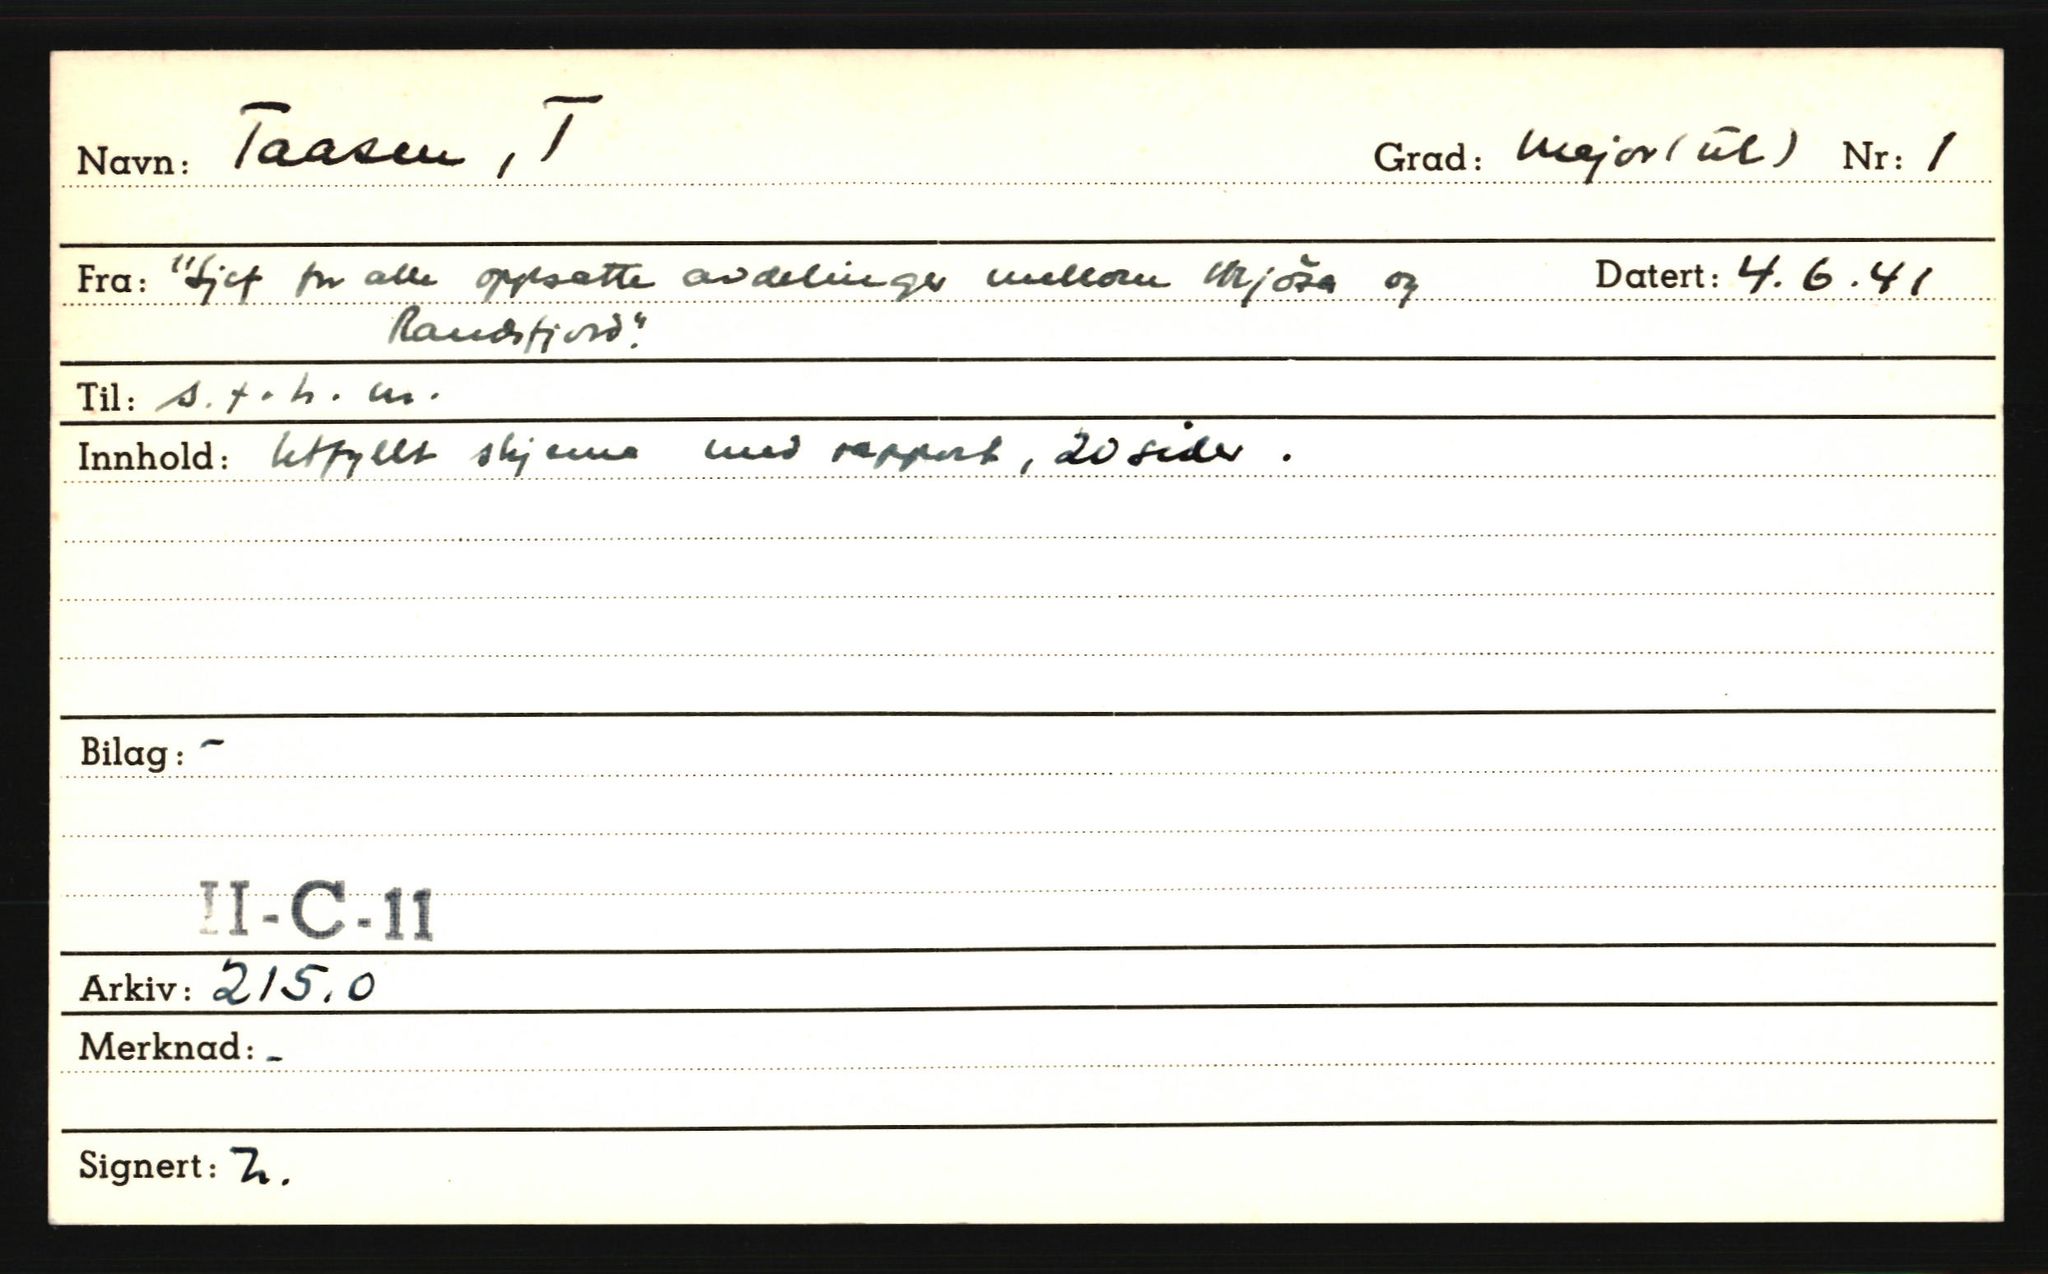 Navn: Taasen, T Grad: Major (ül) Nr: 1
Fra: "Sjef for alle oppsatte avdelinger mellom Mjösa og Datert: 4.6.41
Randsfjord".
Til: s.t.h.m.
Innhold: Utfyllt skjema med rapport, 20 sider.
Bilag: -
II-C-11
Arkiv: 215.0
Merknad: -
Signert: h.